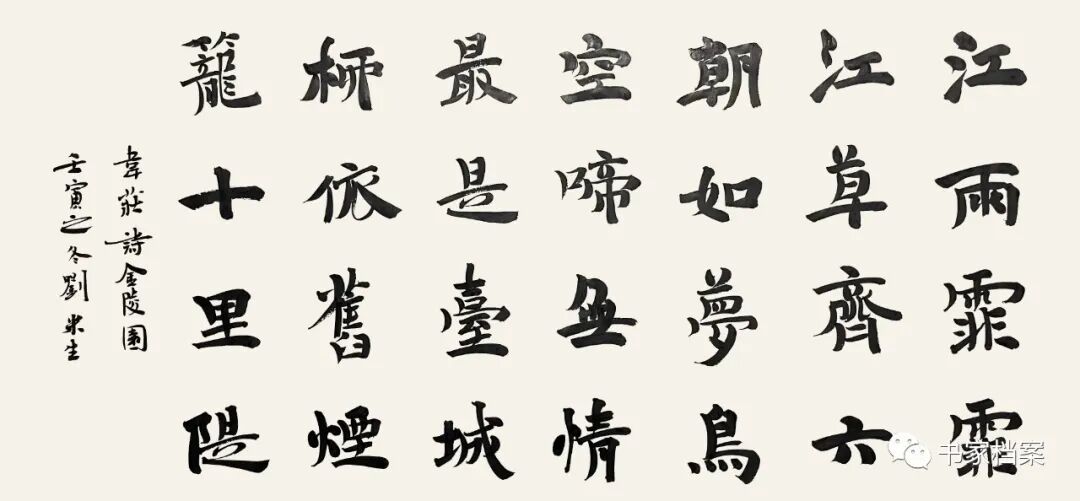 江雨霏霏
江草齊六
朝如夢鳥
空啼無情
最是臺城
柳依舊煙
籠十里隄
韋莊詩金陵圖
壬寅之冬劉米生
书家档案